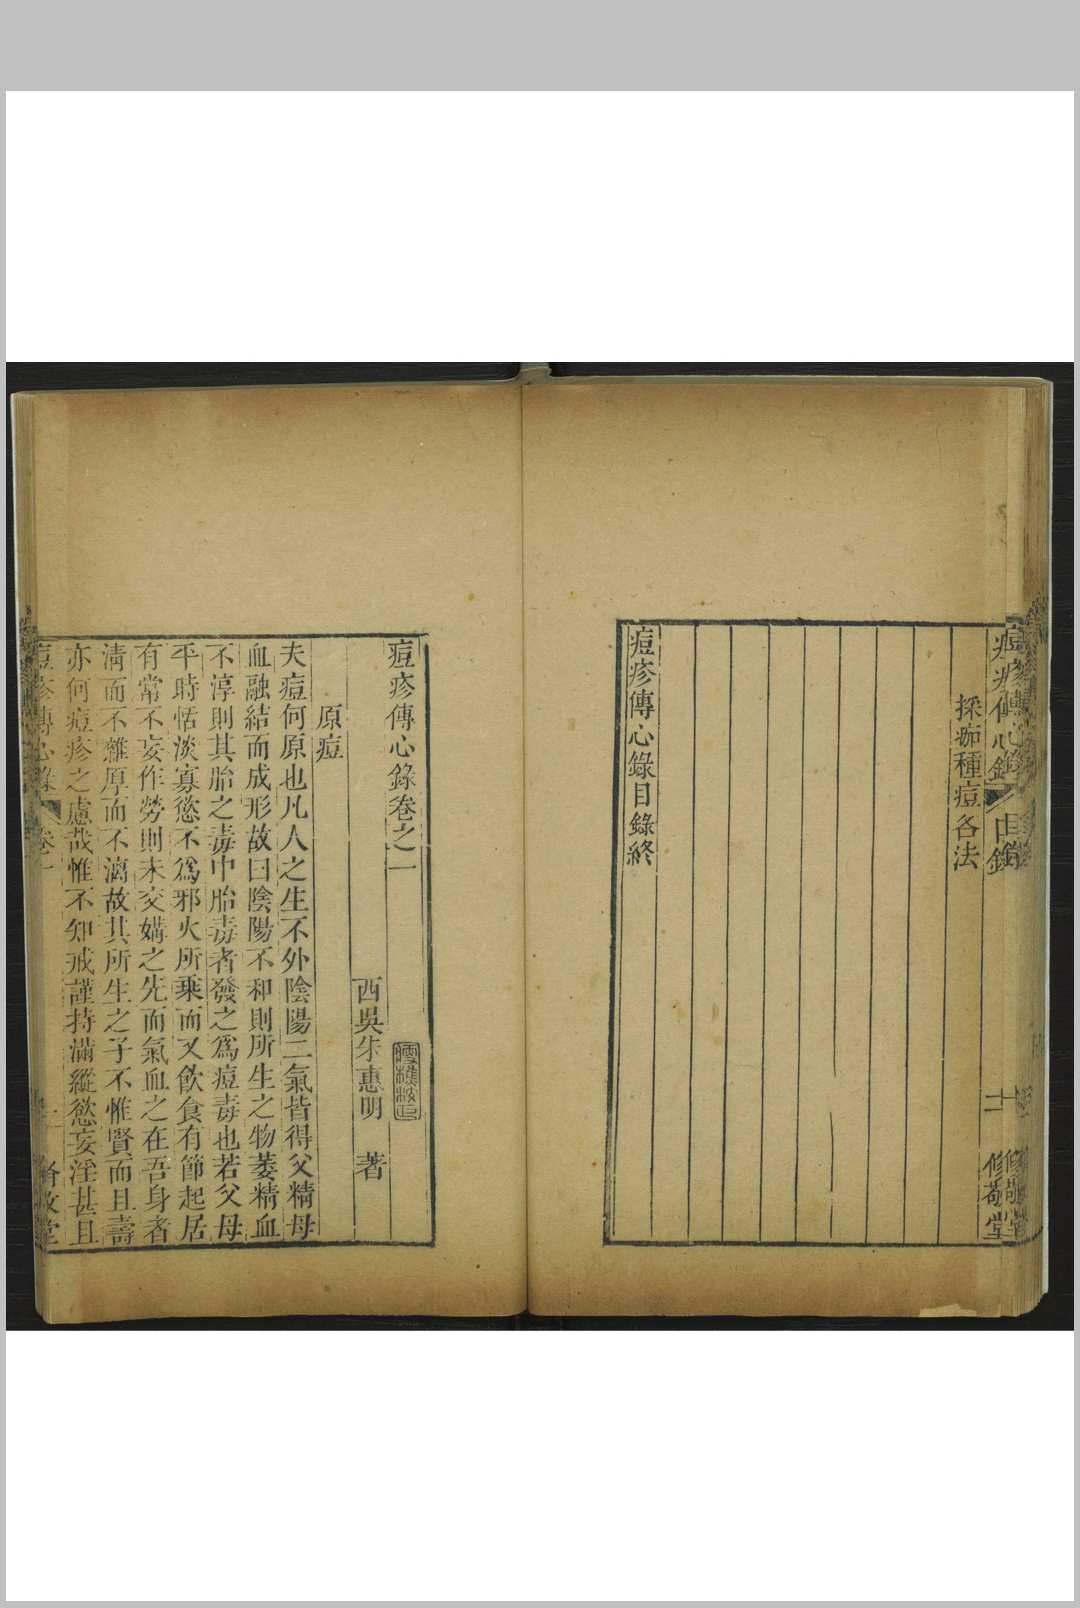 採痂種痘各法
痘疹傳心錄目錄終
痘疹傳心錄卷之一
西吳朱惠明　著
原痘
夫痘何原也凡人之生不外陰陽二氣皆得父精母
血融結而成形故曰陰陽不和則所生之物萎精血
不淳則其胎之毒中胎毒者發之爲痘毒也若父母
平時恬淡寡慾不爲邪火所乘而又飲食有節起居
有常不妄作勞則未交媾之先而氣血之在吾身者
清而不雜厚而不漓故其所生之子不惟賢而且壽
亦何痘疹之慮哉惟不知戒謹持滿縱慾妄淫甚且
痘疹傳心錄
卷一
修敬堂
痘疹傳心錄
目錄
十一
修敬堂